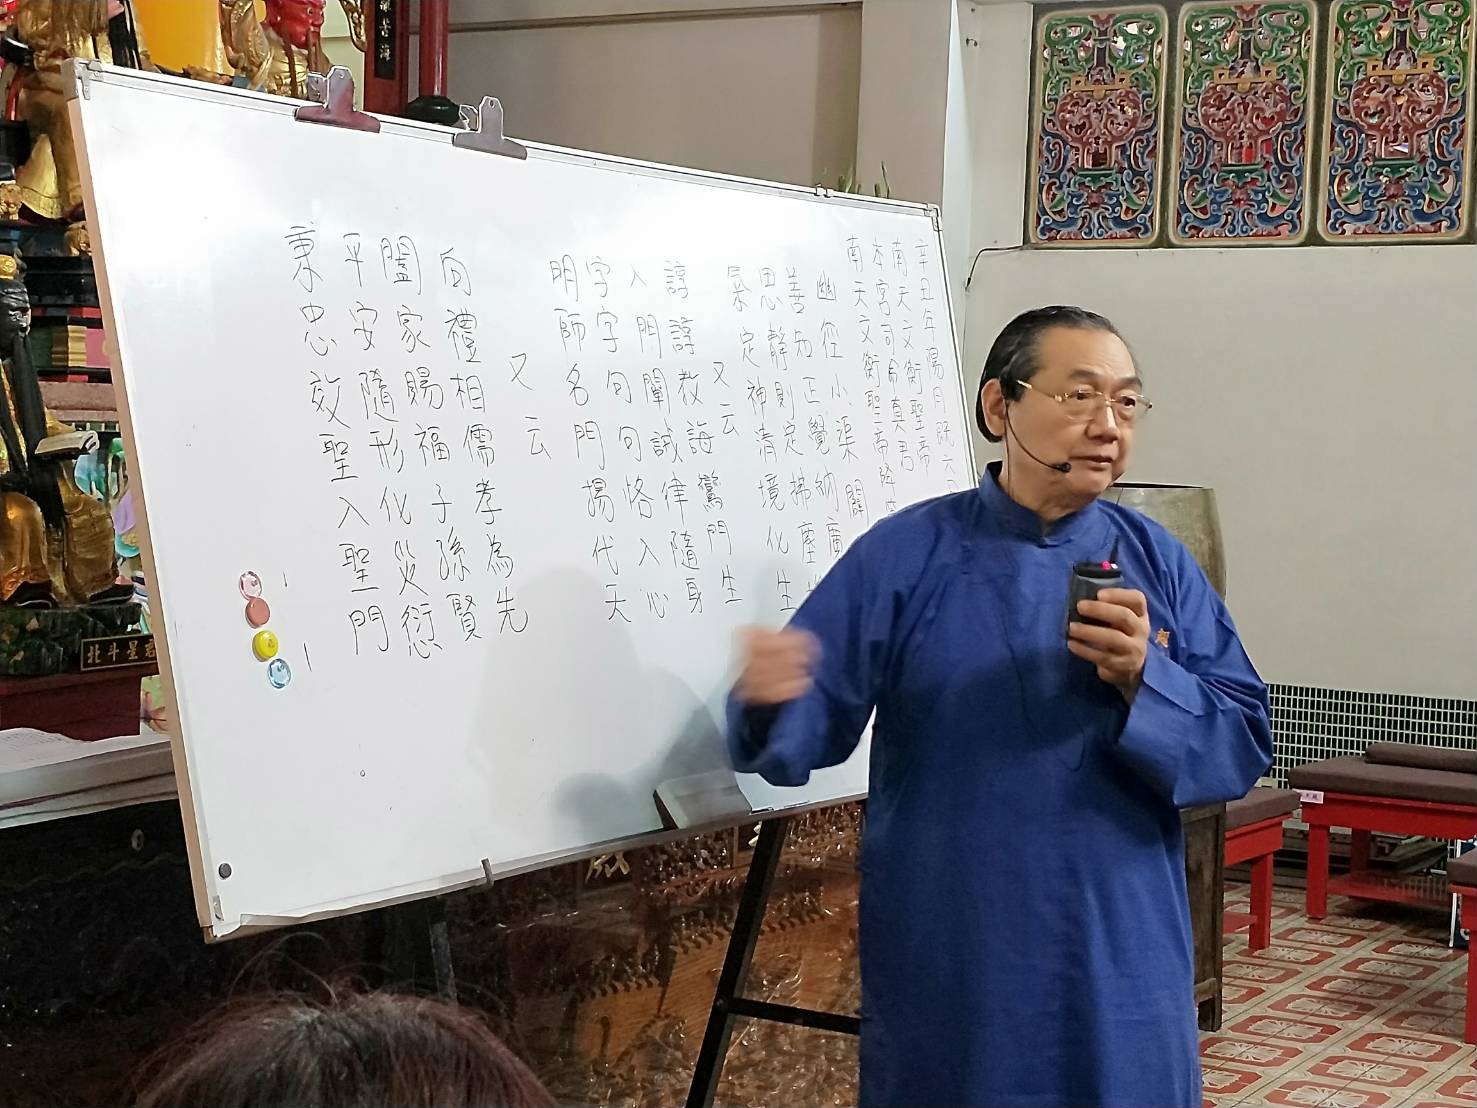 辛丑年陽月既六日
南天文衡聖帝
本宮司命真君
南天文衡聖帝降
幽徑小渠闢
善知正覺納廣
思靜則定拂塵
氣定神清境化生
又云
諄諄教誨驚門生
入門闡誠律隨身
字字句句恪入心
明師名門揚代天
又云
向禮相儒孝為先
闔家賜福子孫賢
平安隨形化災愆
秉忠效聖入聖門
北斗星君